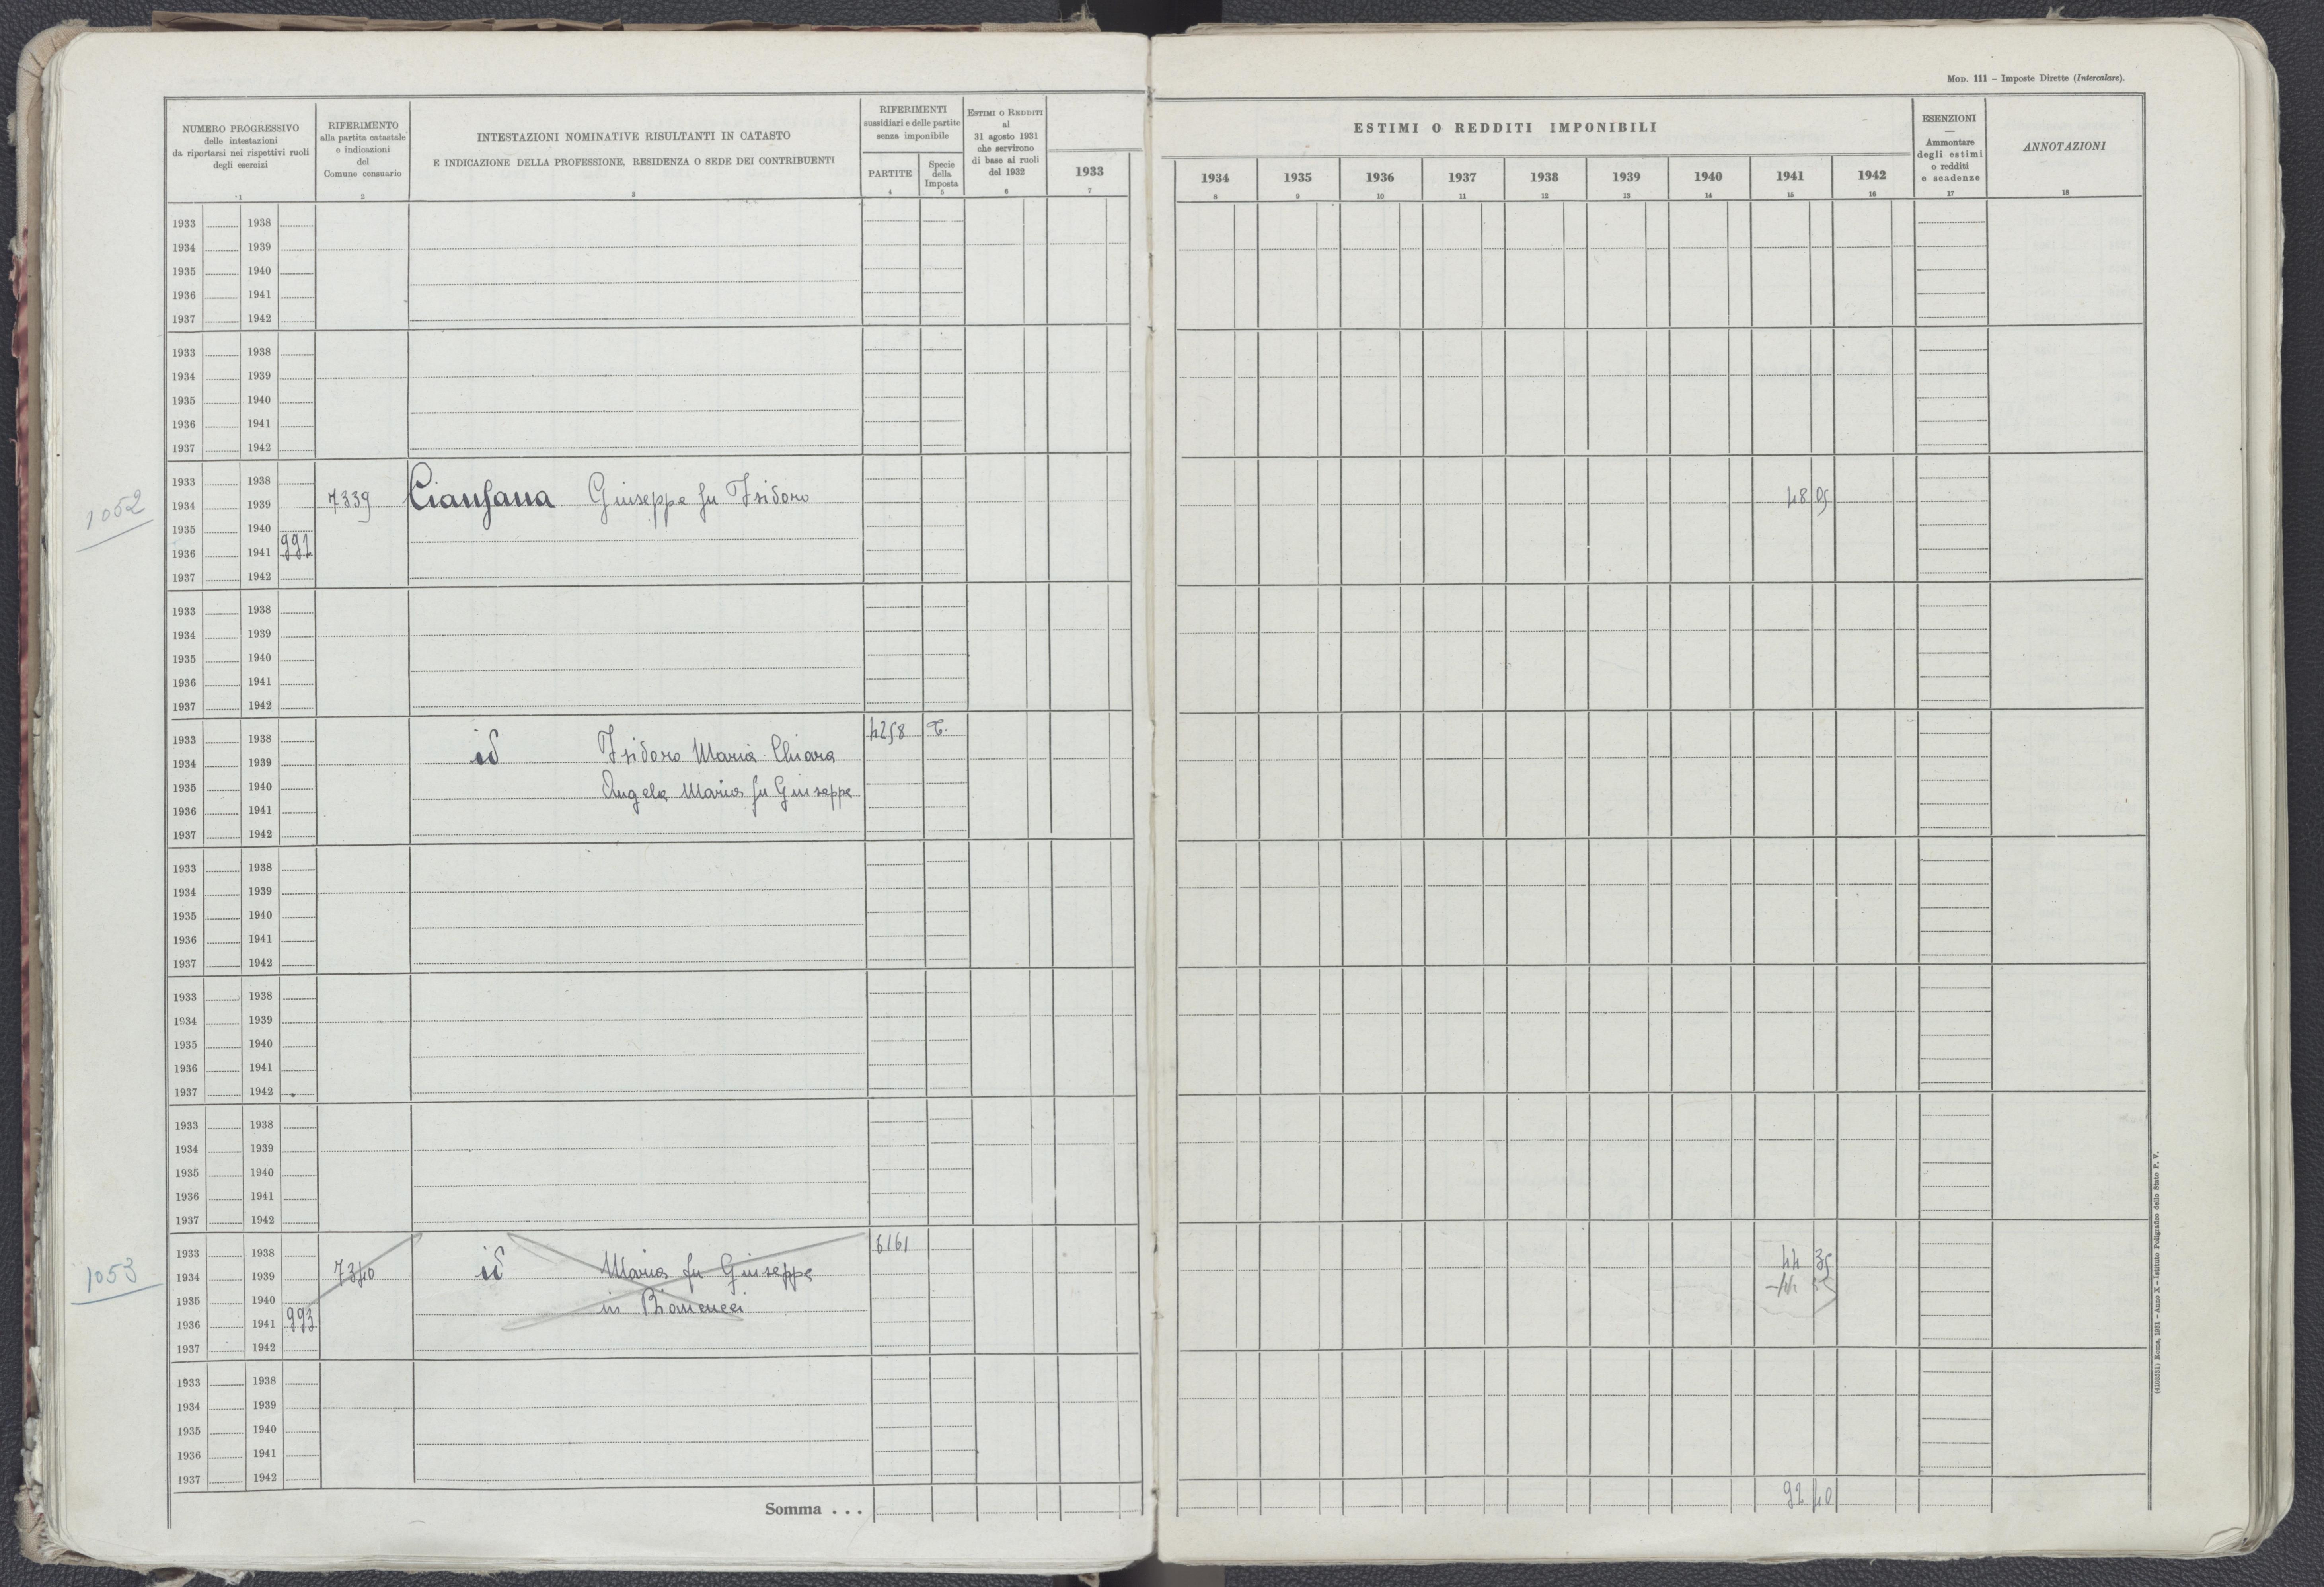 Mod. 111 – Imposte Dirette (Intercalare).
NUMERO PROGRESSIVO
delle intestazioni
da riportarsi nei rispettivi ruoli
degli esercizi
1
RIFERIMENTO
alla partita catastale
e indicazioni
del
Comune censuario
2
INTESTAZIONI NOMINATIVE RISULTANTI IN CATASTO
E INDICAZIONE DELLA PROFESSIONE, RESIDENZA O SEDE DEI CONTRIBUENTI
3
RIFERIMENTI
sussidiari e delle partite
senza imponibile
PARTITE
4
Specie
della
Imposta
5
Estimi o Redditi
al
31 agosto 1931
che servirono
di base ai ruoli
del 1932
6
1933
7
ESTIMI O REDDITI IMPONIBILI
1934 1935 1936 1937 1938 1939 1940 1941 1942
8 9 10 11 12 13 14 15 16
ESENZIONI
—
Ammontare
degli estimi
o redditi
e scadenze
17
ANNOTAZIONI
18
1933 1938
1934 1939
1935 1940
1936 1941
1937 1942
1933 1938
1934 1939
1935 1940
1936 1941
1937 1942
1933 1938
1052 1934 1939 7339 Cianfana Giuseppe fu Isidoro 48 05
1935 1940
1936 1941 991
1937 1942
1933 1938
1934 1939
1935 1940
1936 1941
1937 1942
1933 1938 4258 T.
1934 1939 id Isidoro Maria Chiara
1935 1940 Angela Maria fu Giuseppe
1936 1941
1937 1942
1933 1938
1934 1939
1935 1940
1936 1941
1937 1942
1933 1938
1934 1939
1935 1940
1936 1941
1937 1942
1933 1938
1934 1939
1935 1940
1936 1941
1937 1942
1933 1938 6161
1053 1934 1939 7340 id Maria fu Giuseppe 44 35
1935 1940 in
1936 1941 993
1937 1942
1933 1938
1934 1939
1935 1940
1936 1941
1937 1942
Somma . . . 92 40
(4103551) Roma, 1931 – Anno X – Istituto Poligrafico dello Stato P. V.